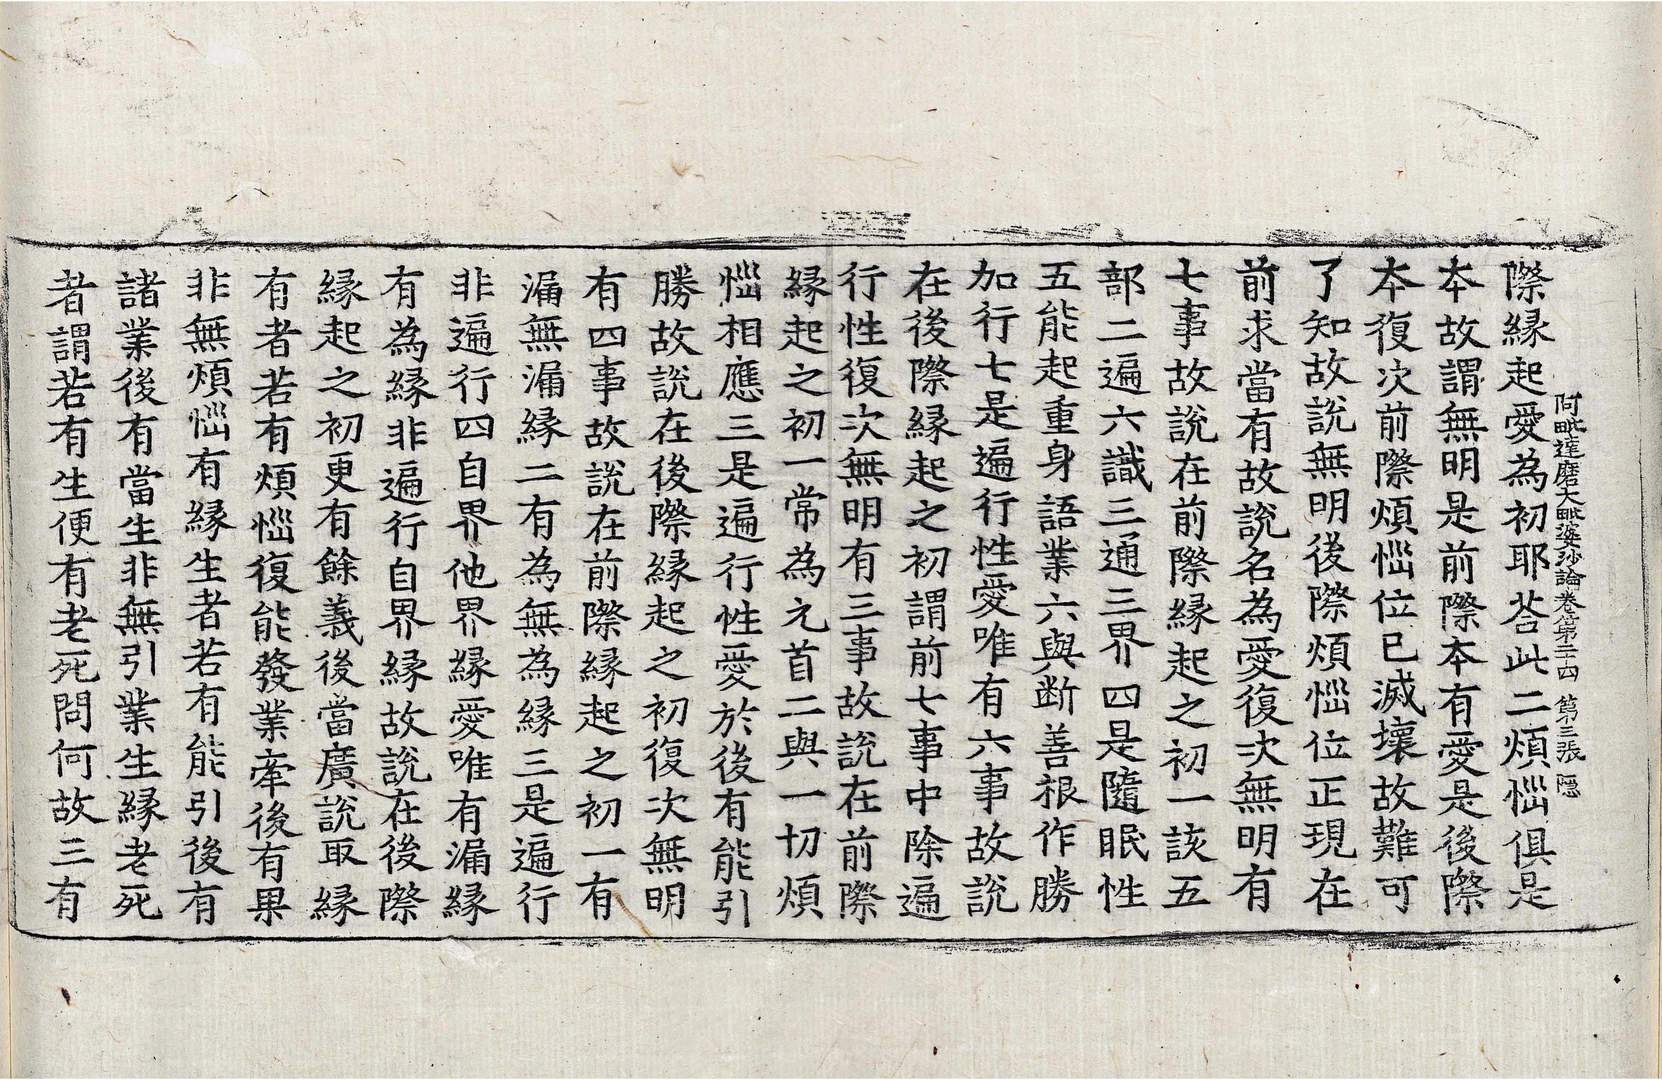 阿毗達磨大毗婆沙論卷第二十四　第三張　隱
際縁起愛為初耶荅此二煩惱俱是
本故謂無明是前際本有愛是後際
本復次前際煩惱位已滅壞故難可
了知故說無明後際煩惱位正現在
前求當有故說名為愛復次無明有
七事故說在前際縁起之初一該五
部二遍六識三通三界四是隨眠性
五能起重身語業六與断善根作勝
加行七是遍行性愛唯有六事故說
在後際縁起之初謂前七事中除遍
行性復次無明有三事故說在前際
縁起之初一常為元首二與一切煩
惱相應三是遍行性愛於後有能引
勝故說在後際縁起之初復次無明
有四事故說在前際縁起之初一有
漏無漏縁二有為無為縁三是遍行
非遍行四自界他界縁愛唯有漏縁
有為縁非遍行自界縁故說在後際
縁起之初更有餘義後當廣說取縁
有者若有煩惱復能發業牽後有果
非無煩惱有縁生者若有能引後有
諸業後有當生非無引業生縁老死
者謂若有生便有老死問何故三有